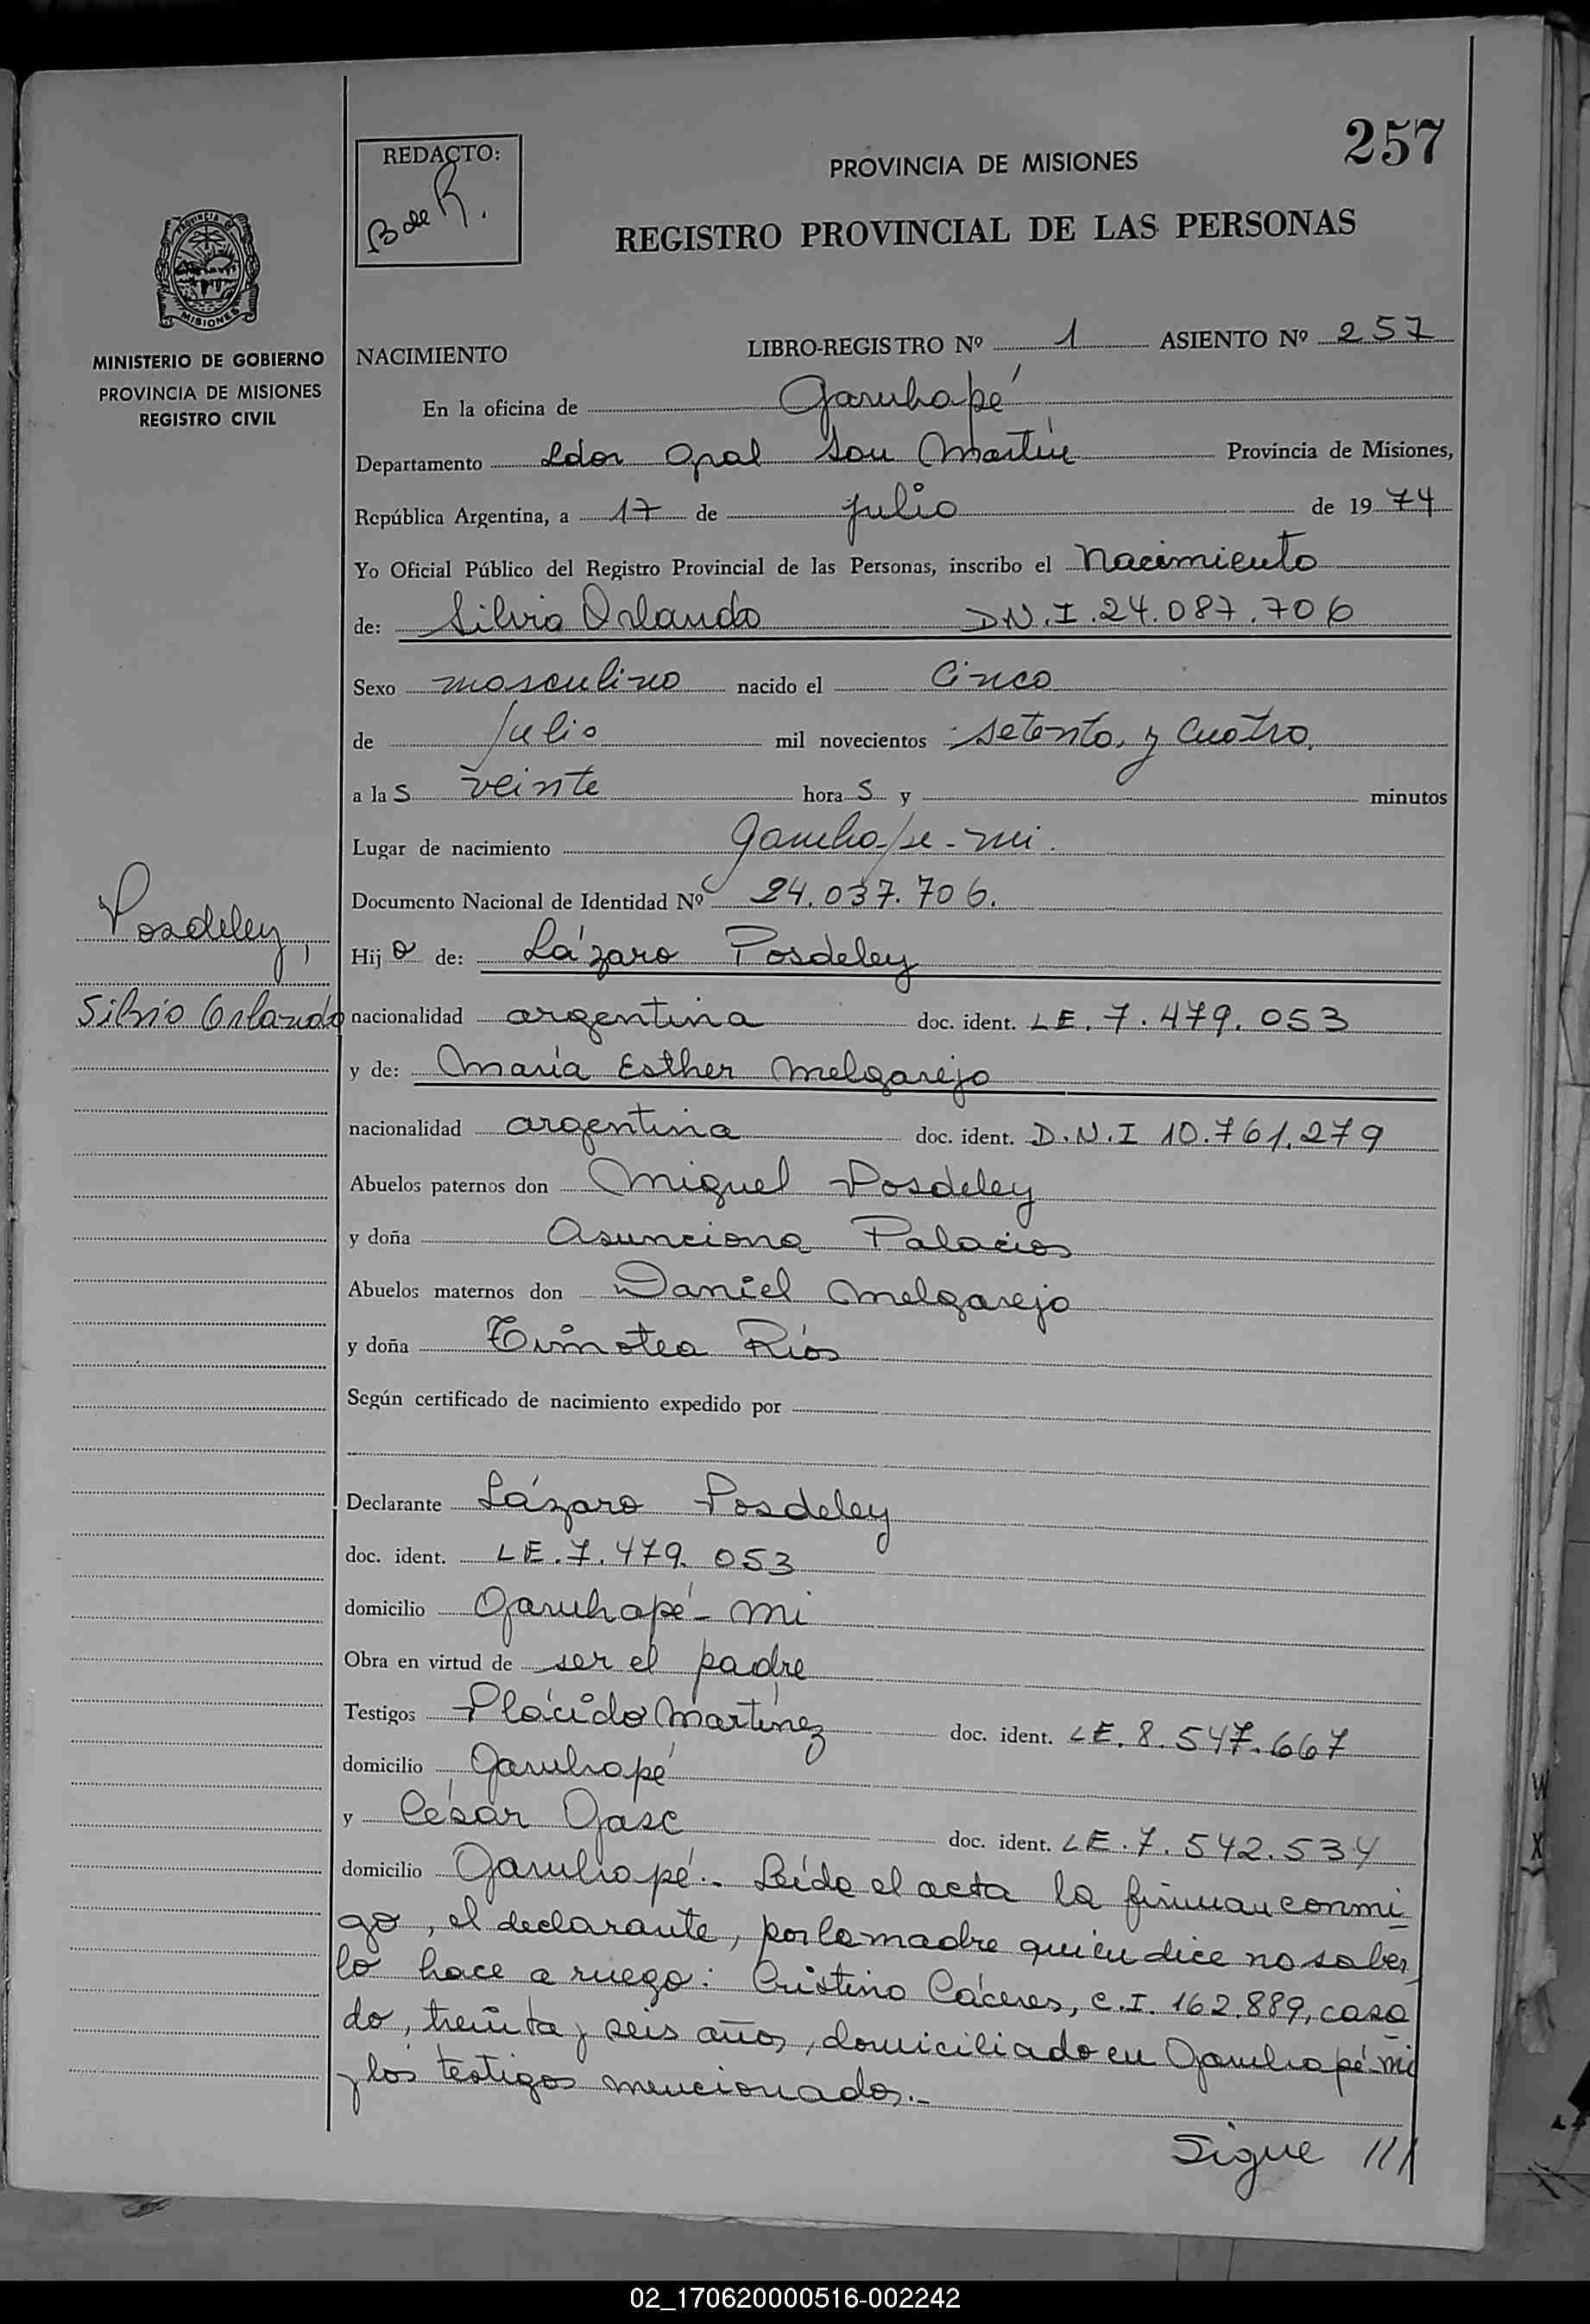 257
REDACTO:
B de R.
PROVINCIA DE MISIONES
REGISTRO PROVINCIAL DE LAS PERSONAS
PROVINCIA DE
MISIONES
MINISTERIO DE GOBIERNO
PROVINCIA DE MISIONES
REGISTRO CIVIL
NACIMIENTO LIBRO-REGISTRO Nº 1 ASIENTO Nº 257
En la oficina de Garuhapé
Departamento Ldor Gral San Martín Provincia de Misiones,
República Argentina, a 17 de julio de 1974
Yo Oficial Público del Registro Provincial de las Personas, inscribo el Nacimiento
de: Silvio Orlando D.N.I.24.087.706
Sexo masculino nacido el Cinco
de Julio mil novecientos setenta y Cuatro
a las veinte horas y minutos
Lugar de nacimiento garuhape-mi.
Documento Nacional de Identidad Nº 24.037.706.
Posdeley,
Silvio Orlando
Hijo de: Lázaro Posdeley
nacionalidad argentina doc. ident. LE. 7.479.053
y de: María Esther Melgarejo
nacionalidad argentina doc. ident. D.N.I 10.761.279
Abuelos paternos don Miguel Posdeley
y doña Asunciona Palacios
Abuelos maternos don Daniel Melgarejo
y doña Timotea Ríos
Según certificado de nacimiento expedido por
Declarante Lázaro Posdeley
doc. ident. LE.7.479.053
domicilio Garuhapé-mi
Obra en virtud de ser el padre
Testigos Plácido Martínez doc. ident. LE.8.547.667
domicilio Garuhapé
y César Gasc doc. ident. LE.7.542.534
domicilio Garuhapé.- Leída el acta la firman conmi
go, el declarante, por la madre quien dice no saber,
lo hace a ruego: Cristino Cáceres, C.I. 162.889, casa
do, treinta y seis años, domiciliado en Garuhapé-mi
y los testigos mencionados.-
Sigue ///
02_170620000516-002242